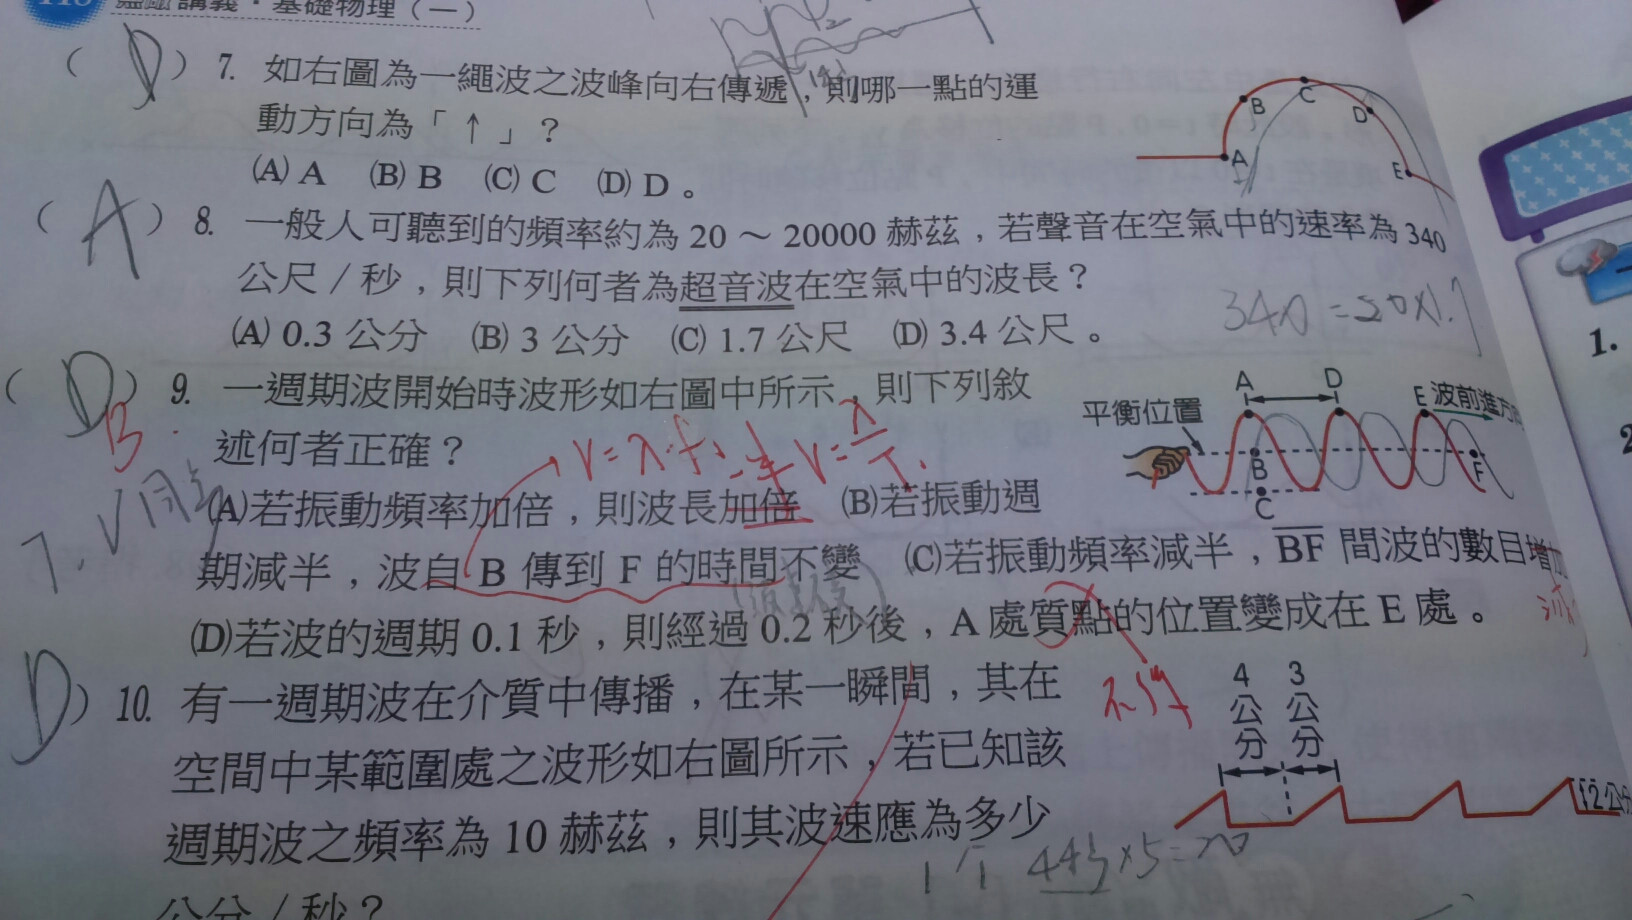 講義．基礎物理（一）
（D）7. 如右圖為一繩波之波峰向右傳遞，則哪一點的運
動方向為「↑」？
(A) A (B) B (C) C (D) D。
A B C D E
（A）8. 一般人可聽到的頻率約為 20 ～ 20000 赫茲，若聲音在空氣中的速率為 340
公尺／秒，則下列何者為超音波在空氣中的波長？
(A) 0.3 公分 (B) 3 公分 (C) 1.7 公尺 (D) 3.4 公尺。
340 = 20×1.7
（D）9. 一週期波開始時波形如右圖中所示，則下列敘
B
述何者正確？
V=λ·f V=λ/T
(A)若振動頻率加倍，則波長加倍 (B)若振動週
期減半，波自 B 傳到 F 的時間不變 (C)若振動頻率減半，BF 間波的數目增加
(D)若波的週期 0.1 秒，則經過 0.2 秒後，A 處質點的位置變成在 E 處。
平衡位置 A D E 波前進方向
B C F
D）10. 有一週期波在介質中傳播，在某一瞬間，其在
空間中某範圍處之波形如右圖所示，若已知該
週期波之頻率為 10 赫茲，則其波速應為多少
公分／秒？
4公分 3公分
2公分
1.
2